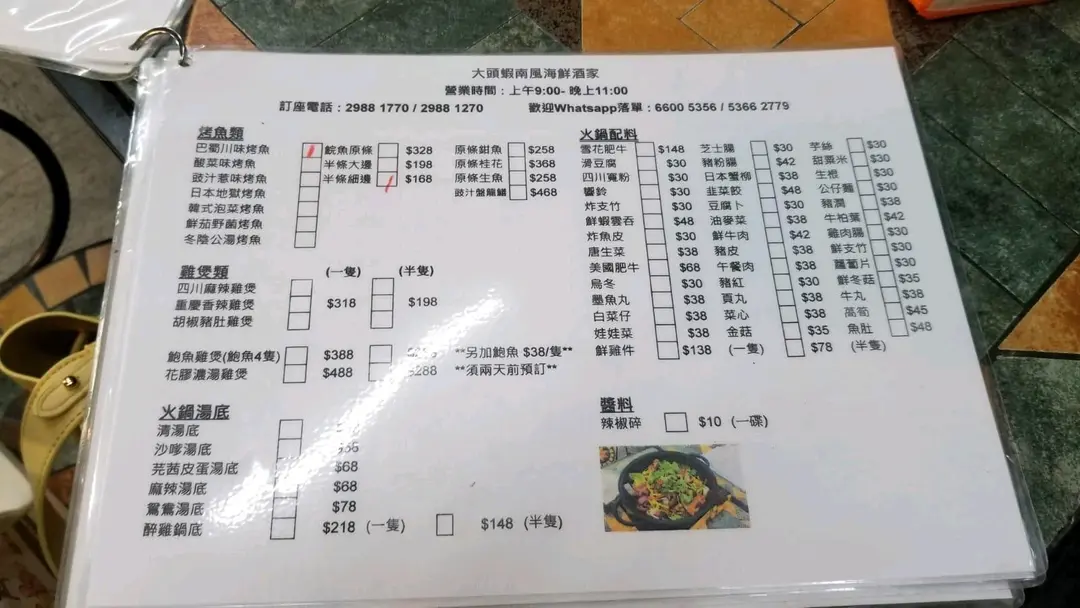 大頭蝦南風海鮮酒家
營業時間：上午9:00- 晚上11:00
訂座電話：2988 1770 / 2988 1270 歡迎Whatsapp落單：6600 5356 / 5366 2779
烤魚類
巴蜀川味烤魚 鯇魚原條 $328 原條鉗魚 $258
酸菜味烤魚 半條大邊 $198 原條桂花 $368
豉汁惹味烤魚 半條細邊 $168 原條生魚 $258
日本地獄烤魚 豉汁盤龍鱔 $468
韓式泡菜烤魚
鮮茄野菌烤魚
冬陰公湯烤魚
雞煲類 (一隻) (半隻)
四川麻辣雞煲
重慶香辣雞煲 $318 $198
胡椒豬肚雞煲
鮑魚雞煲(鮑魚4隻) $388 **另加鮑魚 $38/隻**
花膠濃湯雞煲 $488 $288 **須兩天前預訂**
火鍋湯底
清湯底
沙嗲湯底
芫茜皮蛋湯底 $68
麻辣湯底 $68
鴛鴦湯底 $78
醉雞鍋底 $218 (一隻) $148 (半隻)
火鍋配料
雪花肥牛 $148 芝士腸 $30 芋絲 $30
滑豆腐 $30 豬粉腸 $42 甜粟米 $30
四川寬粉 $30 日本蟹柳 $38 生根 $30
響鈴 $30 韭菜餃 $48 公仔麵 $30
炸支竹 $30 豆腐卜 $30 豬潤 $38
鮮蝦雲吞 $48 油麥菜 $38 牛柏葉 $42
炸魚皮 $30 鮮牛肉 $42 雞肉腸 $30
唐生菜 $38 豬皮 $38 鮮支竹 $30
美國肥牛 $68 午餐肉 $38 蘿蔔片 $30
烏冬 $30 豬紅 $30 鮮冬菇 $35
墨魚丸 $38 貢丸 $38 牛丸 $38
白菜仔 $38 菜心 $38 萵筍 $45
娃娃菜 $38 金菇 $35 魚肚 $48
鮮雞件 $138 (一隻) $78 (半隻)
醬料
辣椒碎 $10 (一碟)